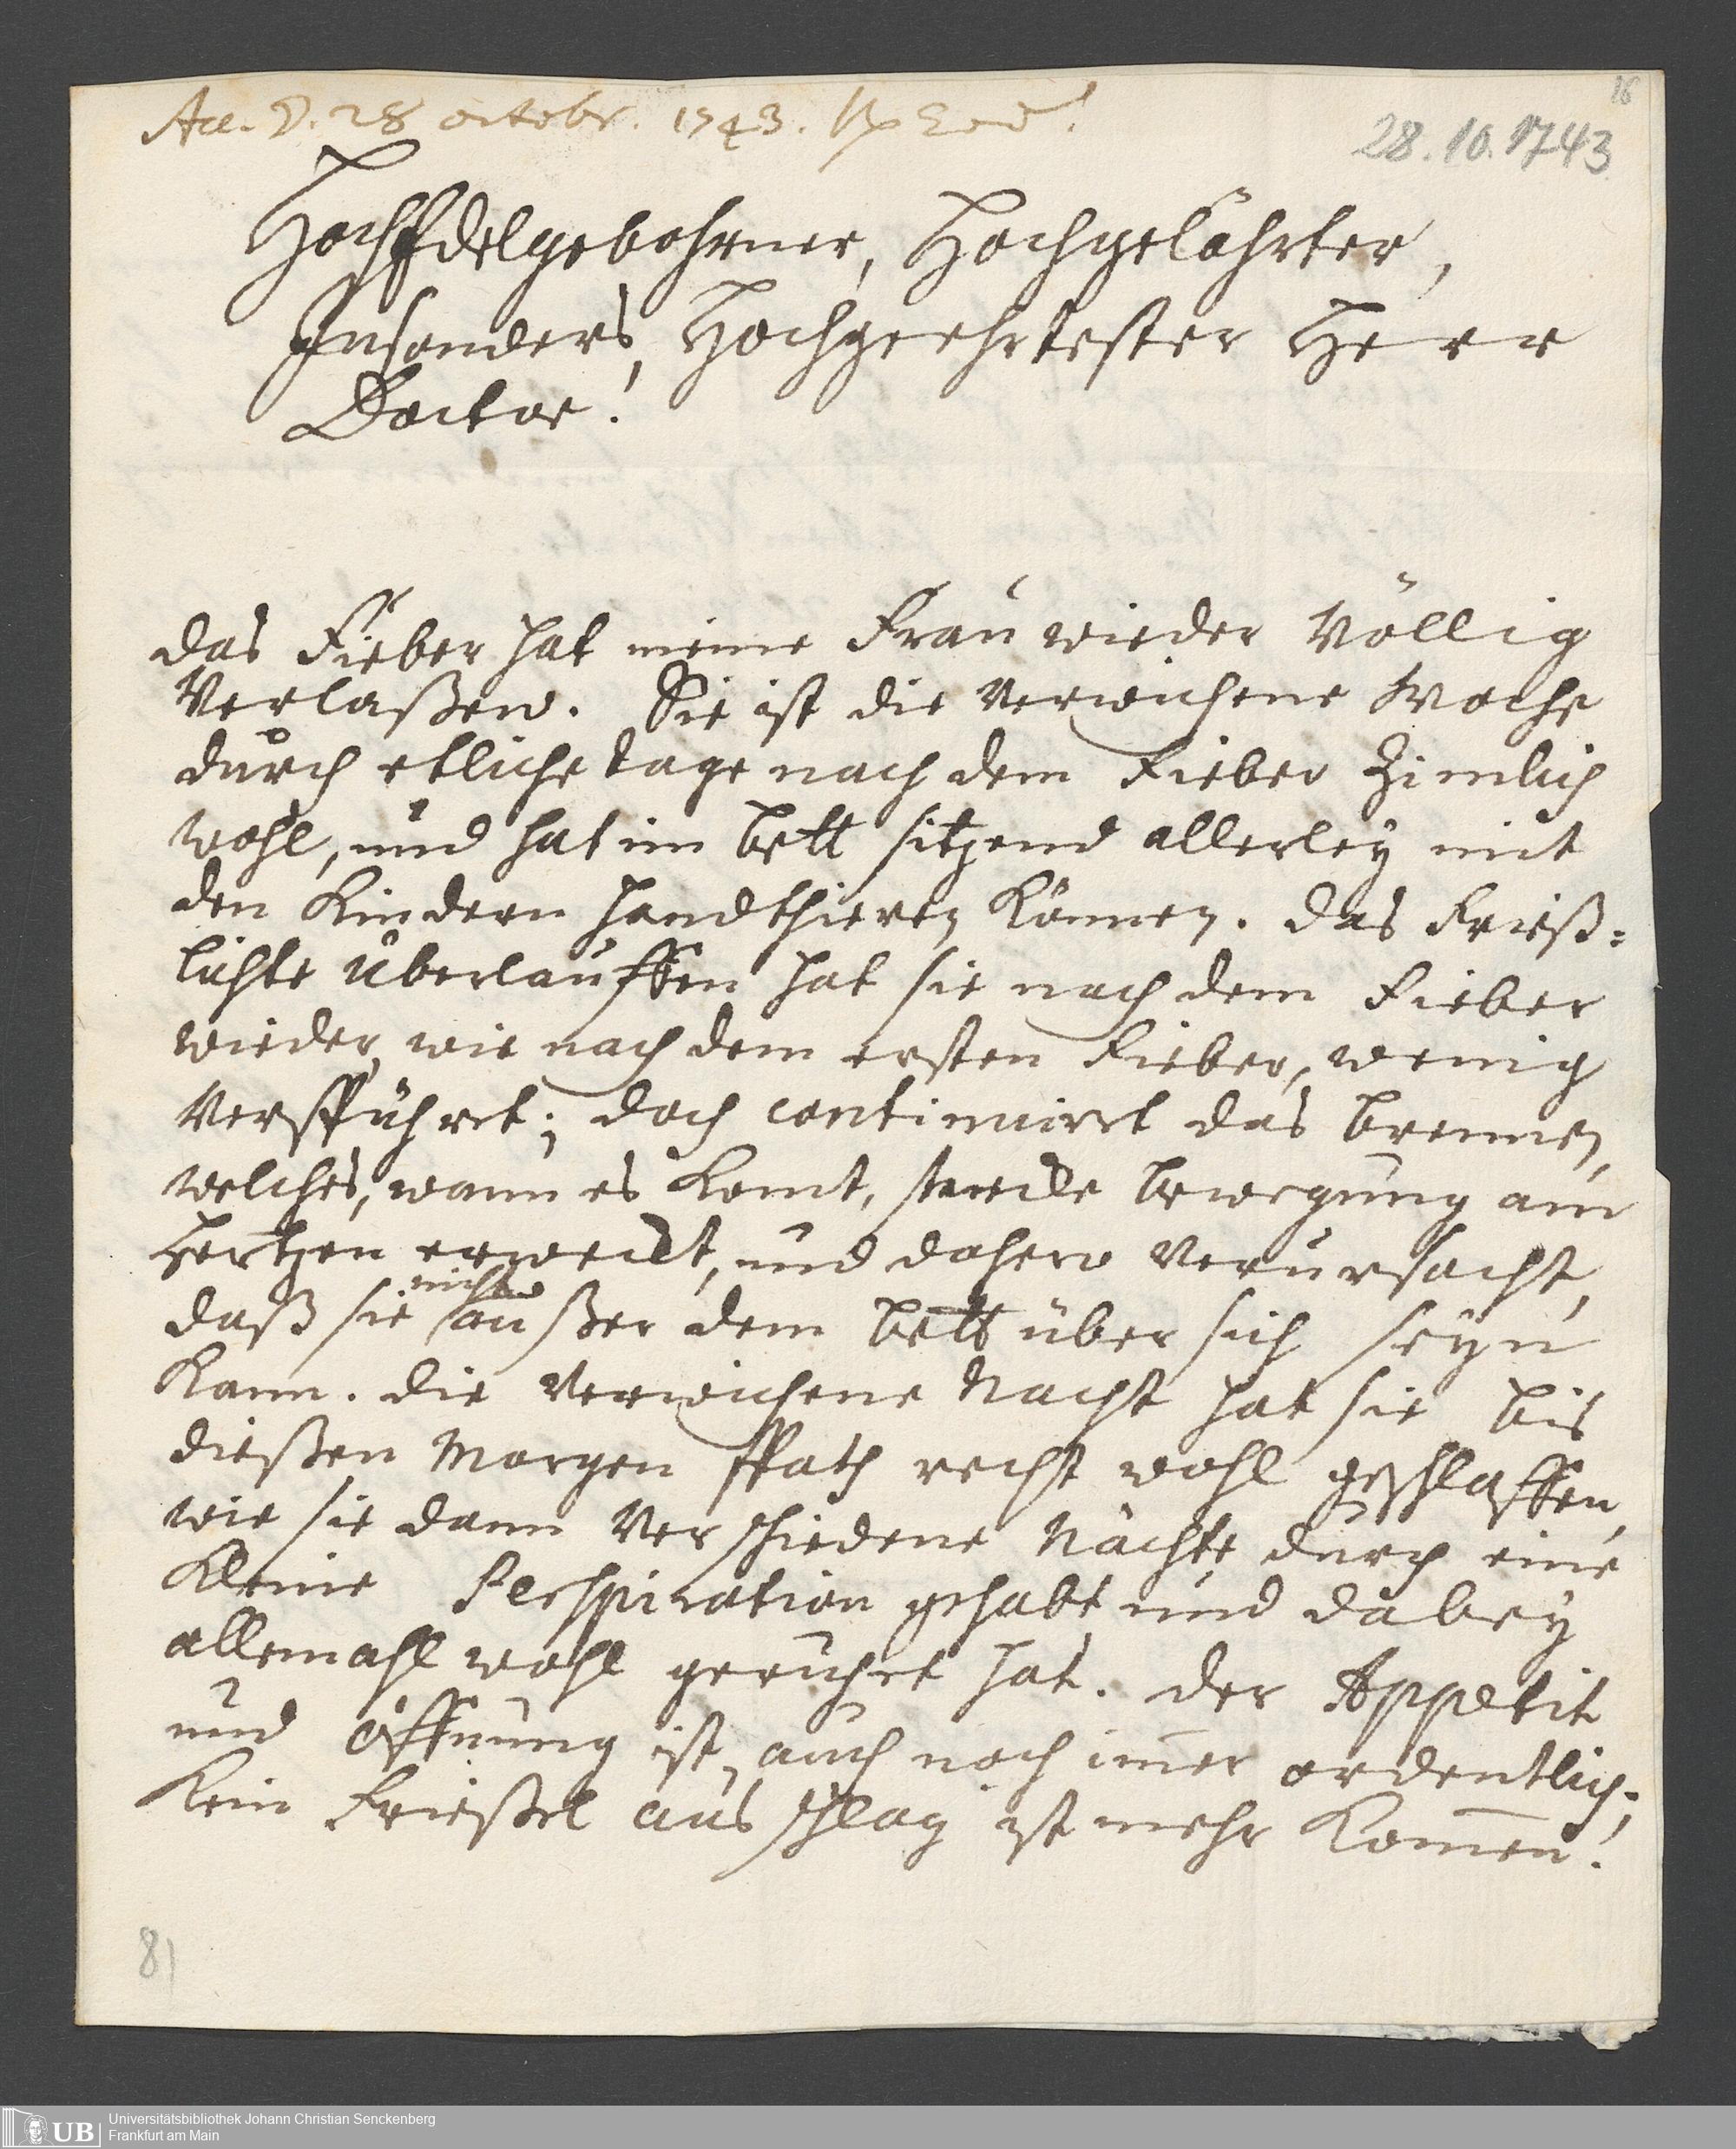 16
Acc. d. 28 octobr. 1743.
28.10.1743
HochEdelgebohrner, Hochgelährter,
Insonders, Hochgeehrtester Herr
Doctor!
das Fieber hat meine Frau wieder Völlig
Verlaßen. Sie ist die Verwichene Woche
durch etliche tage nach dem Fieber Zimlich
wohl, und hat im bett sitzend allerley mit
den Kindern handthieren Können. das Frieß=
lichte überlauffen hat sie nach dem Fieber
wieder, wie nach dem ersten Fieber, wenig
Verspühret; doch continuiret das brennen,
welches, wann es Komt, starcke bewegung am
Hertzen erweckt, und dahero Verursacht,
daß sie nicht außer dem bett über sich seyn
Kann. die Verwichene Nacht hat sie bis
dießen Morgen spath recht wohl geschlaffen,
wie sie dann Verschiedene Nächte durch eine
Kleine Perspiration gehabt und dabey
allemahl wohl geruhet hat. der Appetit
und öffnung ist auch noch im̅er ordentlich;
Kein Frießel ausschlag ist mehr Kom̅en!
81
UB
Universitätsbibliothek Johann Christian Senckenberg
Frankfurt am Main